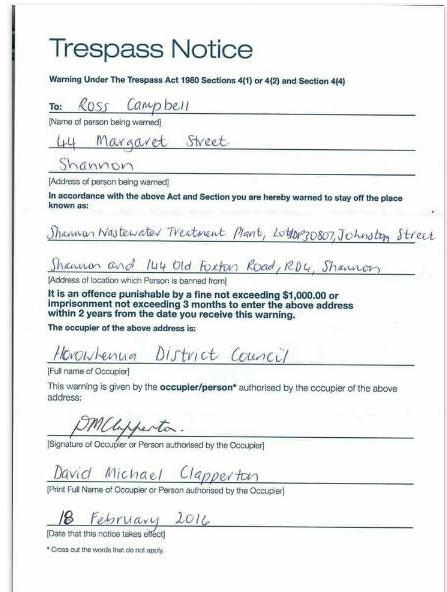 Trespass Notice
Warning Under The Trespass Act 1980 Sections 4(1) or 4(2) and Section 4(4)
To: Ross Campbell
[Name of person being warned]
44 Margaret Street
Shannon
[Address of person being warned]
In accordance with the above Act and Section you are hereby warned to stay off the place
known as:
Shannon Wastewater Treatment Plant, DP30807, Johnston Street
Shannon and 144 Old Foxton Road, RD4, Shannon
[Address of location which Person is banned from]
It is an offence punishable by a fine not exceeding $1,000.00 or
imprisonment not exceeding 3 months to enter the above address
within 2 years from the date you receive this warning.
The occupier of the above address is:
Horowhenua District Council
[Full name of Occupier]
This warning is given by the occupier/person* authorised by the occupier of the above
address:
DMClapperton.
[Signature of Occupier or Person authorised by the Occupier]
David Michael Clapperton
[Print Full Name of Occupier or Person authorised by the Occupier]
18 February 2016
[Date that this notice takes effect]
* Cross out the words that do not apply.